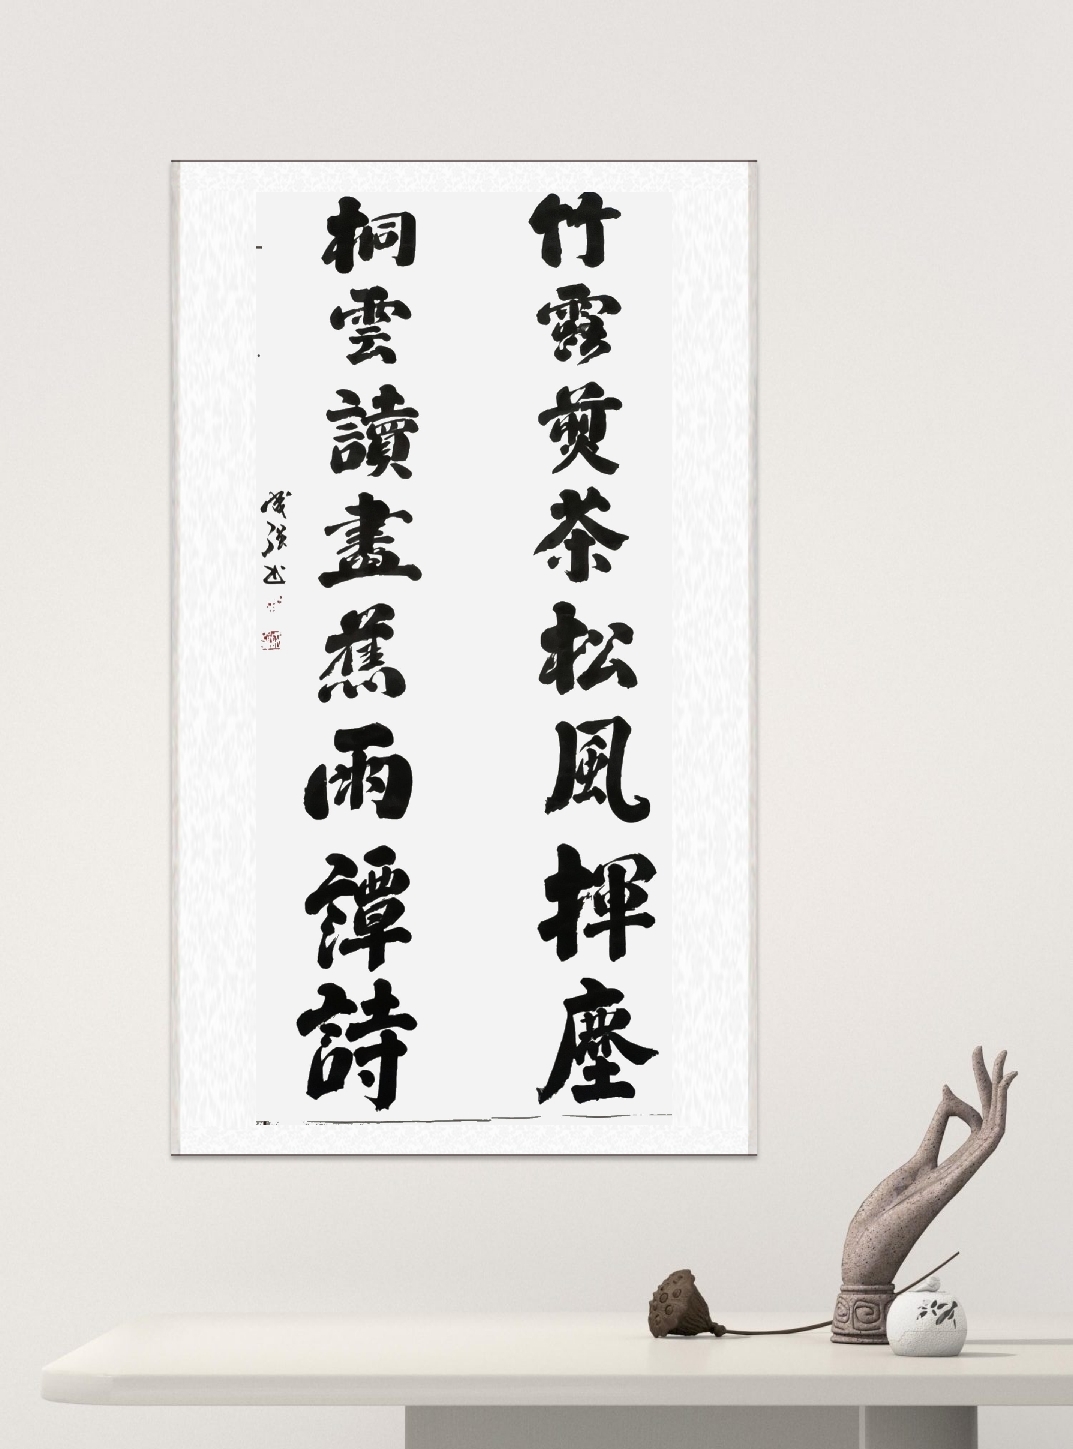 竹露煎茶松風揮麈
桐雲讀畫蕉雨譚詩